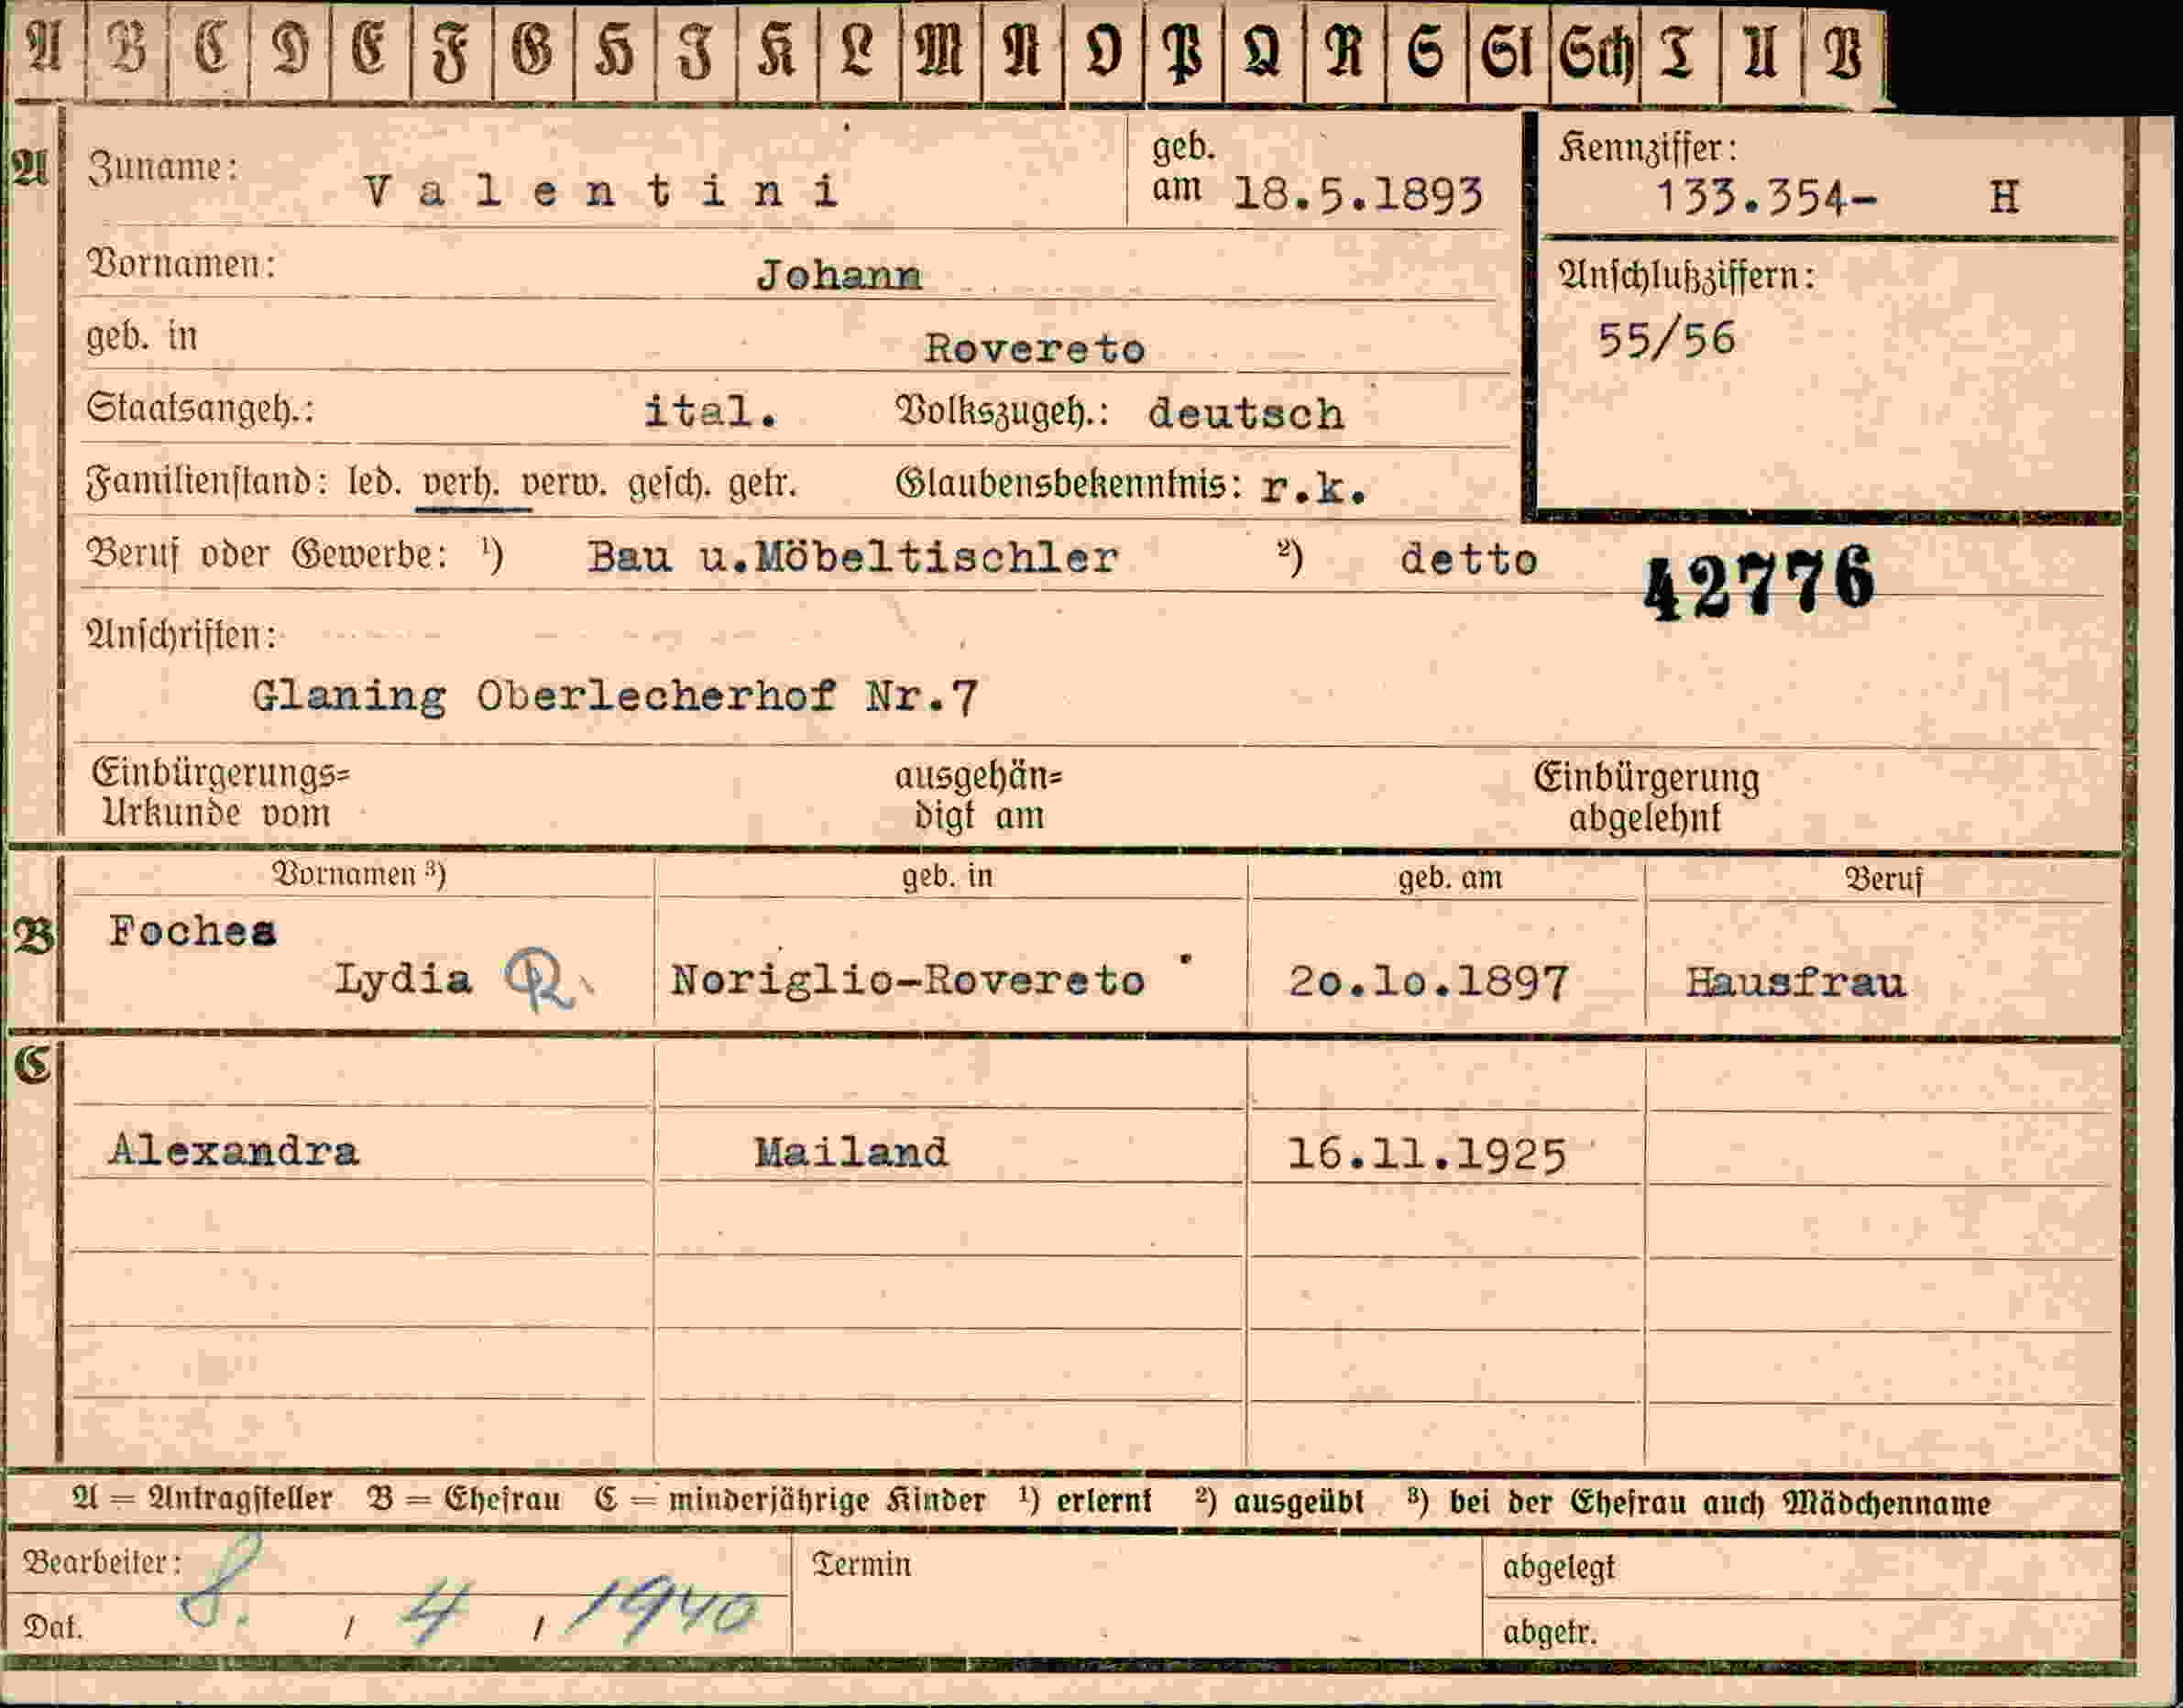 A B C D E F G H J K L M N O P Q R S St Sch T U V
A Zuname: Valentini geb. am 18.5.1893 Kennziffer: 133.354- H
Vornamen: Johann Anschlußziffern:
geb. in Rovereto 55/56
Staatsangeh.: ital. Volkszugeh.: deutsch
Familienstand: led. verh. verw. gesch. getr. Glaubensbekenntnis: r.k.
Beruf oder Gewerbe: ¹) Bau u.Möbeltischler ²) detto 42776
Anschriften:
Glaning Oberlecherhof Nr.7
Einbürgerungs= ausgehän= Einbürgerung
Urkunde vom digt am abgelehnt
Vornamen ³) geb. in geb. am Beruf
B Foches
Lydia R Noriglio-Rovereto 2o.1o.1897 Hausfrau
C
Alexandra Mailand 16.11.1925
A = Antragsteller B = Ehefrau C = minderjährige Kinder ¹) erlernt ²) ausgeübt ³) bei der Ehefrau auch Mädchenname
Bearbeiter: Termin abgelegt
Dat. 8. / 4 / 1940 abgetr.